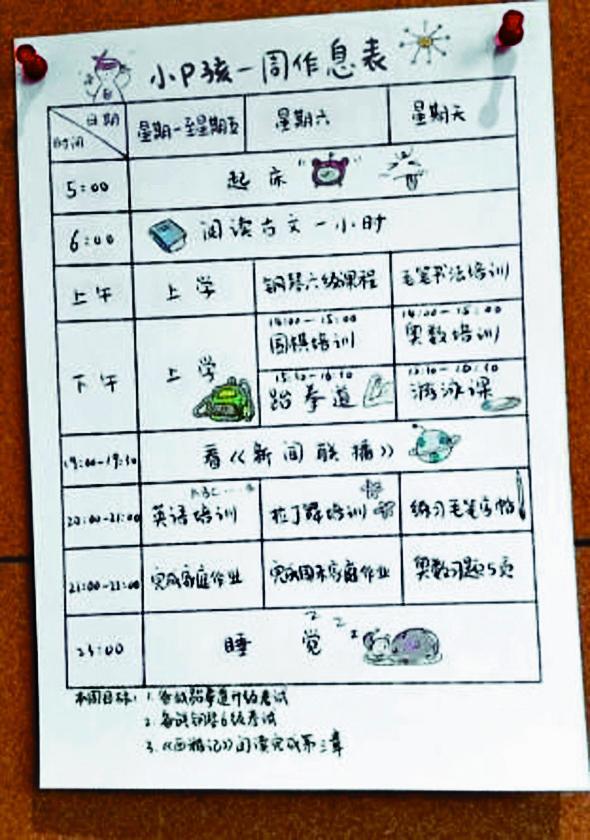 小P孩一周作息表
日期
时间
星期一至星期五 星期六 星期天
5:00 起床
6:00 阅读古文一小时
上午 上学 钢琴六级课程 毛笔书法培训
下午 上学
14:00—15:00 14:00—15:00
围棋培训 奥数培训
15:30—16:30
跆拳道 游泳课
19:00—19:30 看《新闻联播》
ABC
20:00—21:00 英语培训 拉丁舞培训 练习毛笔字帖
21:00— 完成家庭作业 完成周末家庭作业 奥数习题5页
睡觉 z z z
本周目标：1. 备战跆拳道升级考试
2. 备战钢琴6级考试
3.《西游记》阅读完成第三章